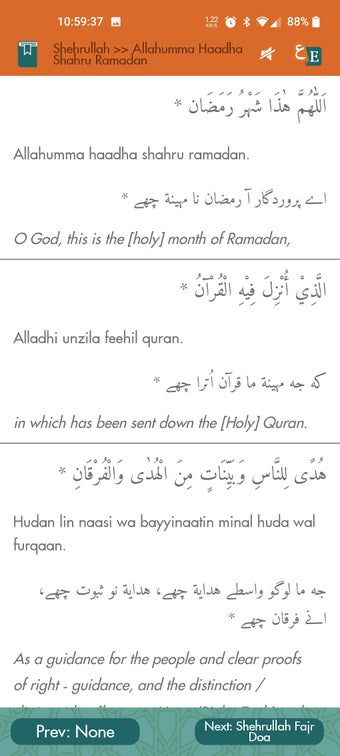 10:59:37
1.22
KB/S
88%
Shehrullah >> Allahumma Haadha
Shahru Ramadan
ع
E
اَللّٰهُمَّ هٰذَا شَهْرُ رَمَضَان *
Allahumma haadha shahru ramadan.
اے پروردگار آ رمضان نا مهينة چهے *
O God, this is the [holy] month of Ramadan,
الَّذِيْ أُنْزِلَ فِيْهِ الْقُرْآنُ *
Alladhi unzila feehil quran.
كه جه مهينة ما قرآن اُترا چهے *
in which has been sent down the [Holy] Quran.
هُدًى لِلنَّاسِ وَبَيِّنَاتٍ مِنَ الْهُدٰى وَالْفُرْقَانِ *
Hudan lin naasi wa bayyinaatin minal huda wal
furqaan.
جه ما لوگو واسطے هداية چهے، هداية نو ثبوت چهے،
انے فرقان چهے *
As a guidance for the people and clear proofs
of right - guidance, and the distinction /
Prev: None
Next: Shehrullah Fajr
Doa